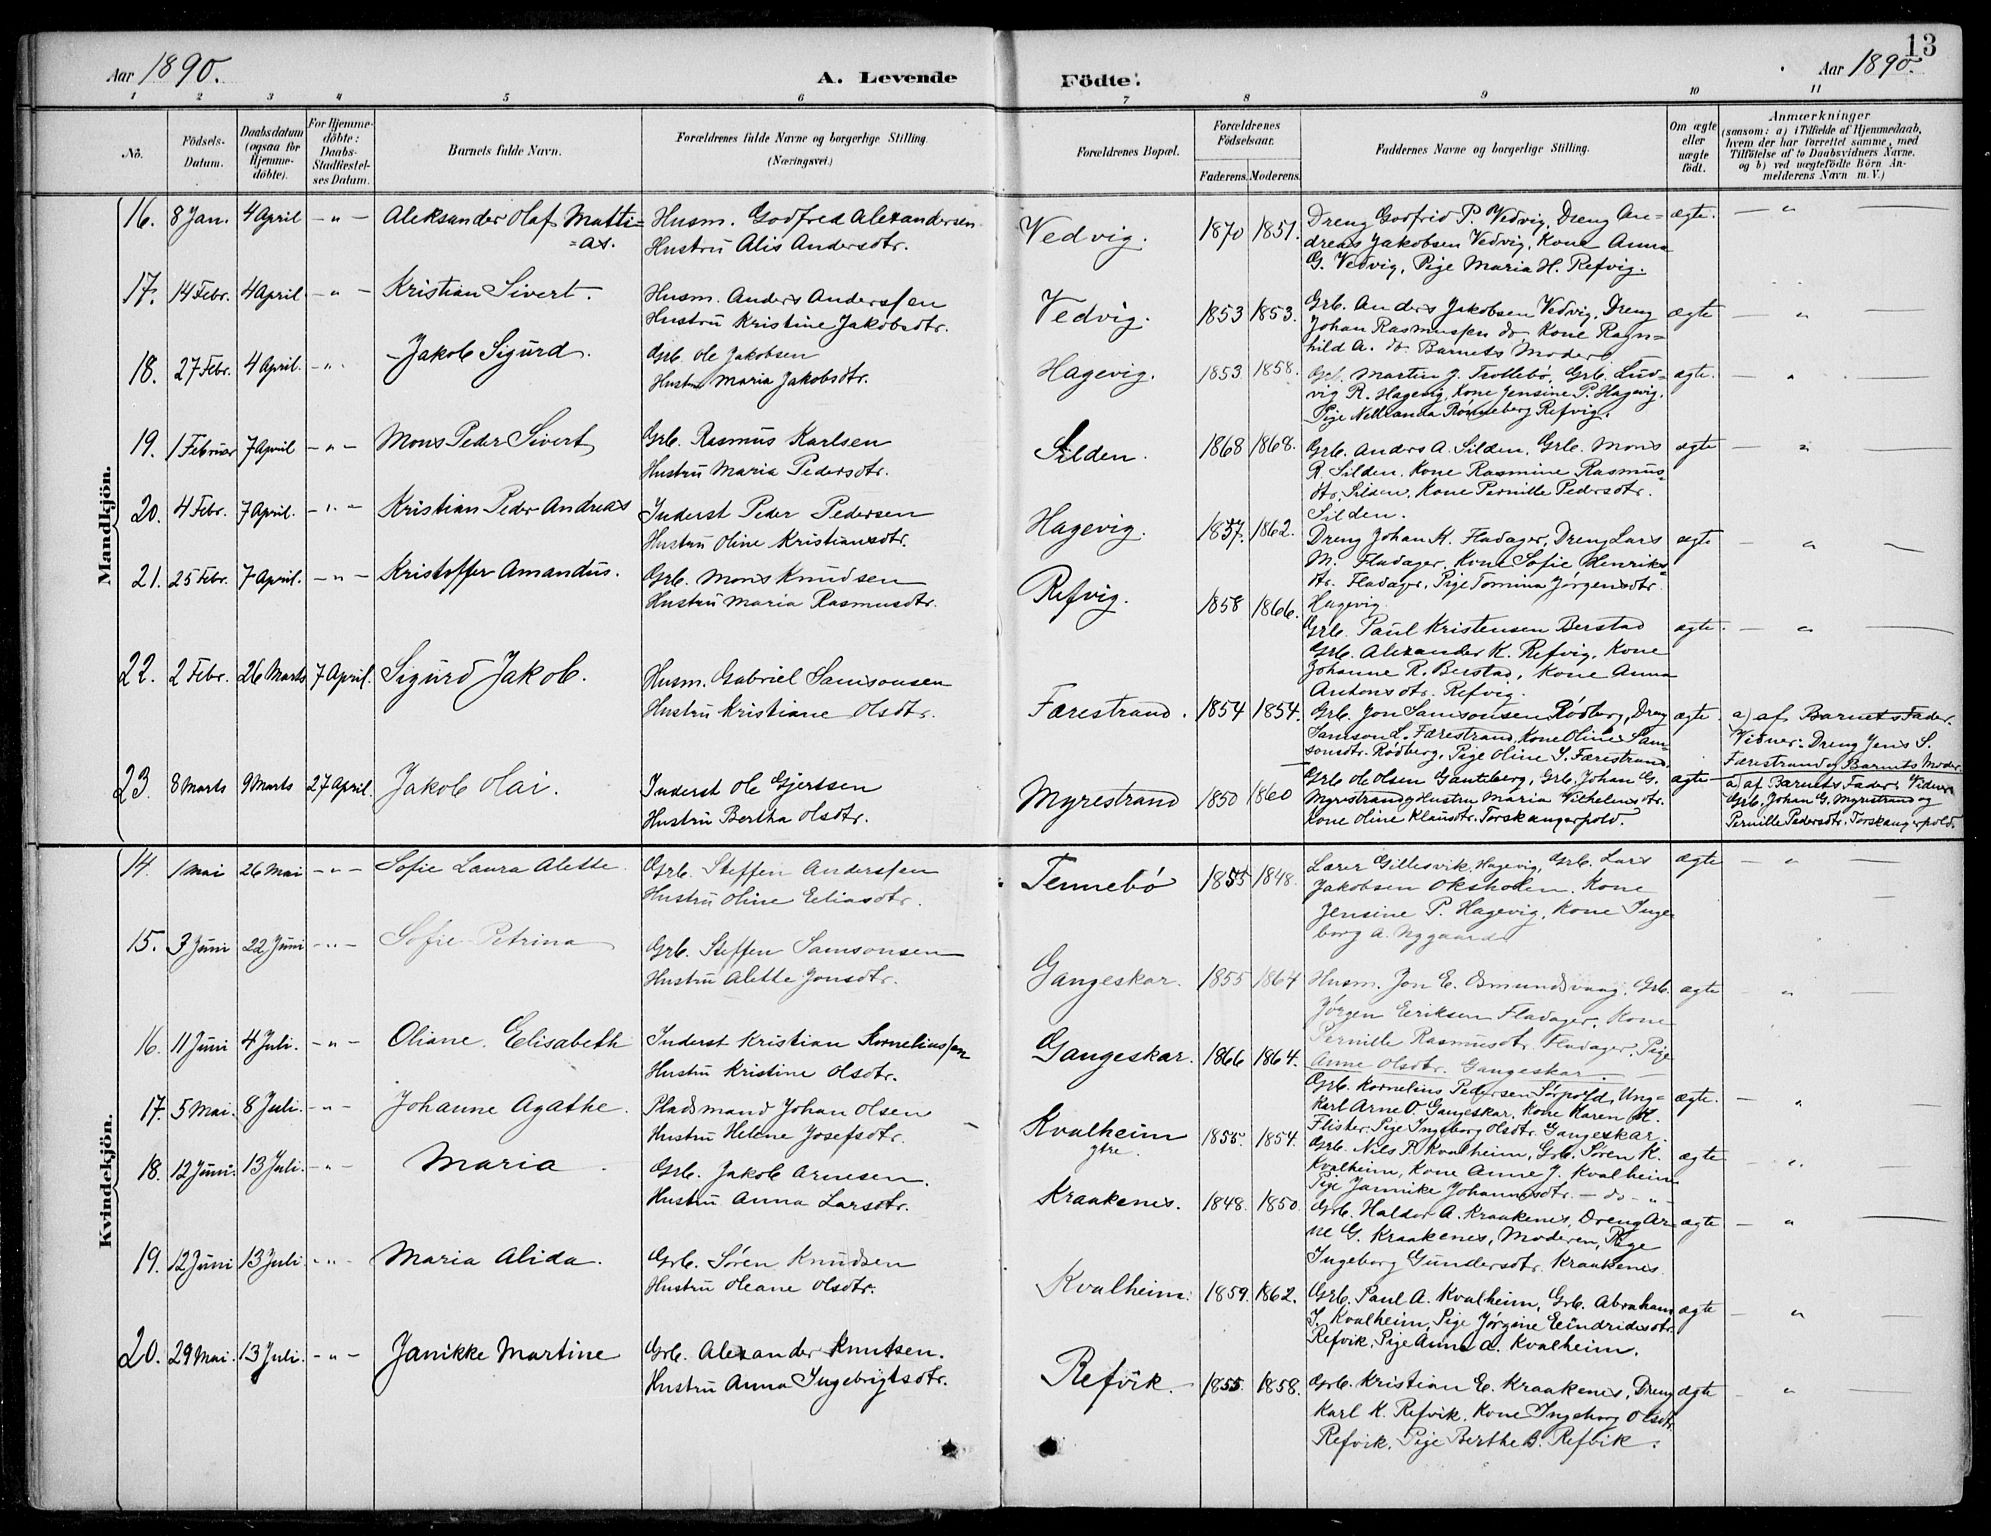 13
Aar 1890.
A. Levende
Födte.
Aar 1890.
1 2 3 4 5 6 7 8 9 10 11
No.
Födsels-Datum.
Daabsdatum (ogsaa for Hjemme-döbte).
For Hjemme-döbte: Daabs-Stadfæstel-ses Datum.
Barnets fulde Navn.
Forældrenes fulde Navne og borgerlige Stilling. (Næringsvei.)
Forældrenes Bopæl.
Forældrenes Födselsaar.
Faderens. Moderens.
Faddernes Navne og borgerlige Stilling.
Om ægte eller uægte födt.
Anmærkninger
(saasom: a) i Tilfælde af Hjemmedaab, hvem der har forrettet samme, med Tilföielse af to Daabsvidners Navne, og b) ved uægtefödte Börn An-melderens Navn m. V.)
Mandkjön.
16. 8 Jan. 4 April - " - Aleksander Olaf Matti=
=as.
Husm. Godfred Alexandersen
Hustru Alis Andersdtr.
Vedvig. 1870 1851.
Dreng Godfrid P. Vedvig, Dreng An=
dreas Jakobsen Vedvig, Kone Anna
G. Vedvig, Pige Maria H. Refvig.
ægte. - " -
17. 14 Febr. 4 April - " - Kristian Sivert.
Husm. Anders Anderssen
Hustru Kristine Jakobsdtr.
Vedvig. 1853 1853.
Grb. Anders Jakobsen Vedvig, Dreng
Johan Rasmussen do, Kone Ragn=
hild A. do. Barnets Moder
ægte - " -
18. 27 Febr. 4 April. - " - Jakob Sigurd.
Grb. Ole Jakobsen
Hustru Maria Jakobsdtr.
Hagevig. 1853 1858.
Grb. Martin J. Trottebö, Grb. Lud=
vig R. Hagevig, Kone Jensine P. Hagevig.
Pige Nellianna Rönneberg Refvig.
ægte. - " -
19. 1 Februar 7 April - " - Mons Peder Sivert
Grb. Rasmus Karlsen
Hustru Maria Pedersdtr.
Silden. 1868 1868.
Grb. Anders A. Silden, Grb. Mons
R. Silden. Kone Rasmine Rasmus=
dtr. Silden. Kone Pernille Pedersdtr.
Silden.
ægte - " -
20. 4 Febr. 7 April. - " - Kristian Peder Andreas
Inderst Peder Pedersen
Hustru Oline Kristiansdtr.
Hagevig. 1857. 1862.
Dreng Johan K. Fladager, Dreng Lars
M. Fladager, Kone Sofie Henriks=
dtr. Fladager, Pige Tomina Jørgensdtr.
Hagevig
ægte - " -
21. 25 Febr. 7 April. - " - Kristoffer Amandus.
Grb. Mons Knudsen
Hustru Maria Rasmusdtr.
Refvig. 1858 1866.
Grb. Paul Kristensen Berstad
Grb. Alexander K. Refvig, Kone
Johanne R. Berstad, Kone Anna
Antonsdtr. Refvig.
ægte. - " -
22. 2 Febr. 26 Marts 7 April. Sigurd Jakob.
Husm. Gabriel Samsonsen
Hustru Kristiane Olsdtr.
Færestrand. 1854 1854.
Grb. Jon Samsonsen Rödberg, Dreng
Samson L. Færestrand, Kone Oline Sam-
sonsdtr. Rödberg, Pige Oline S. Færestrand.
ægte
a) af Barnets Fader.
Vidner: Dreng Jens S.
Færestrand og Barnets Moder
23. 8 Marts 9 Marts 27 April. Jakob Olai.
Inderst Ole Gjertsen
Hustru Bertha Olsdtr.
Myrestrand 1850 1860
Grb Ole Olsen Ganteberg, Grb. Johan G.
Myrestrand og Hustru Maria Vilhelmsdtr.
Kone Oline Klausdtr. Torskangerpold.
ægte
a) af Barnets Fader. Vidner
Grb. Johan G. Myrestrand og
Pernille Pedersdtr. Torskangerpold.
Kvindekjön.
14. 1 Mai 26 Mai - " - Sofie Laura Alette.
Grb. Steffen Anderssen
Hustru Oline Eeliasdtr.
Tennebö 1855 1848.
Lærer Gillesvik, Hagevig, Grb. Lars
Jakobsen Oksholen. Kone
Jensine P. Hagevig, Kone Inge
borg A. Nygaard
ægte - " -
15. 3 Juni 22 Juni - " - Sofie Petrina
Grb. Steffen Samsonsen
Hustru Alette Jonsdtr.
Gangeskar. 1855 1864
Husm. Jon E. Osmundsvaag, Grb.
Jørgen Eeriksen Fladager, Kone
Pernille Rasmusdtr. Fladager, Pige
Anne Olsdtr. Gangeskar.
ægte - " -
16. 11 Juni 4 Juli. - " - Oliane Elisabeth
Inderst Kristian Korneliussen
Hustru Kristine Olsdtr.
Gangeskar. 1866 1864.
Grb. Kornelius Pedersen Sörpold, Ung=
karl Arne O. Gangeskar, Kone Karen M.
Flister, Pige Ingeborg Olsdtr. Gangeskar.
ægte. - " -
17. 5 Mai. 8 Juli. - " - Johanne Agathe.
Pladsmand Johan Olsen
Hustru Helene Josefsdtr.
Kvalheim
ytre. 1855. 1854.
Grb. Nils R Kvalheim, Grb. Sören K.
Kvalheim, Kone Anne J. Kvalheim
Pige Jannike Johannesdtr. - do - " -
ægte - " -
18. 12 Juni. 13 Juli. - " - Maria
Grb. Jakob Arnesen.
Hustru Anna Larsdtr.
Kraakenes. 1848. 1850.
Grb. Haldor A. Kraakenes, Dreng Ar=
ne G. Kraakenes, Moderen, Pige
Ingeborg Gundersdtr. Kraakenes.
ægte - " -
19. 12 Juni 13 Juli - " - Maria Alida.
Grb. Sören Knudsen
Hustru Oleane Olsdtr.
Kvalheim. 1859. 1862.
Grb. Paul A. Kvalheim, Grb. Abraham
J. Kvalheim, Pige Jørgine Eeindridsdtr.
Refvik, Pige Anne A. Kvalheim.
ægte - " -
20. 29 Mai. 13 Juli. - " - Janikke Martine
Grb. Alexander Knutsen.
Hustru Anna Ingebrigtsdtr.
Refvik. 1855. 1858.
Grb. Kristian E. Kraakenes, Dreng
Karl K. Refvik, Kone Ingeborg Olsdtr.
Refvik. Pige Berthe B. Refvik.
ægte - " -